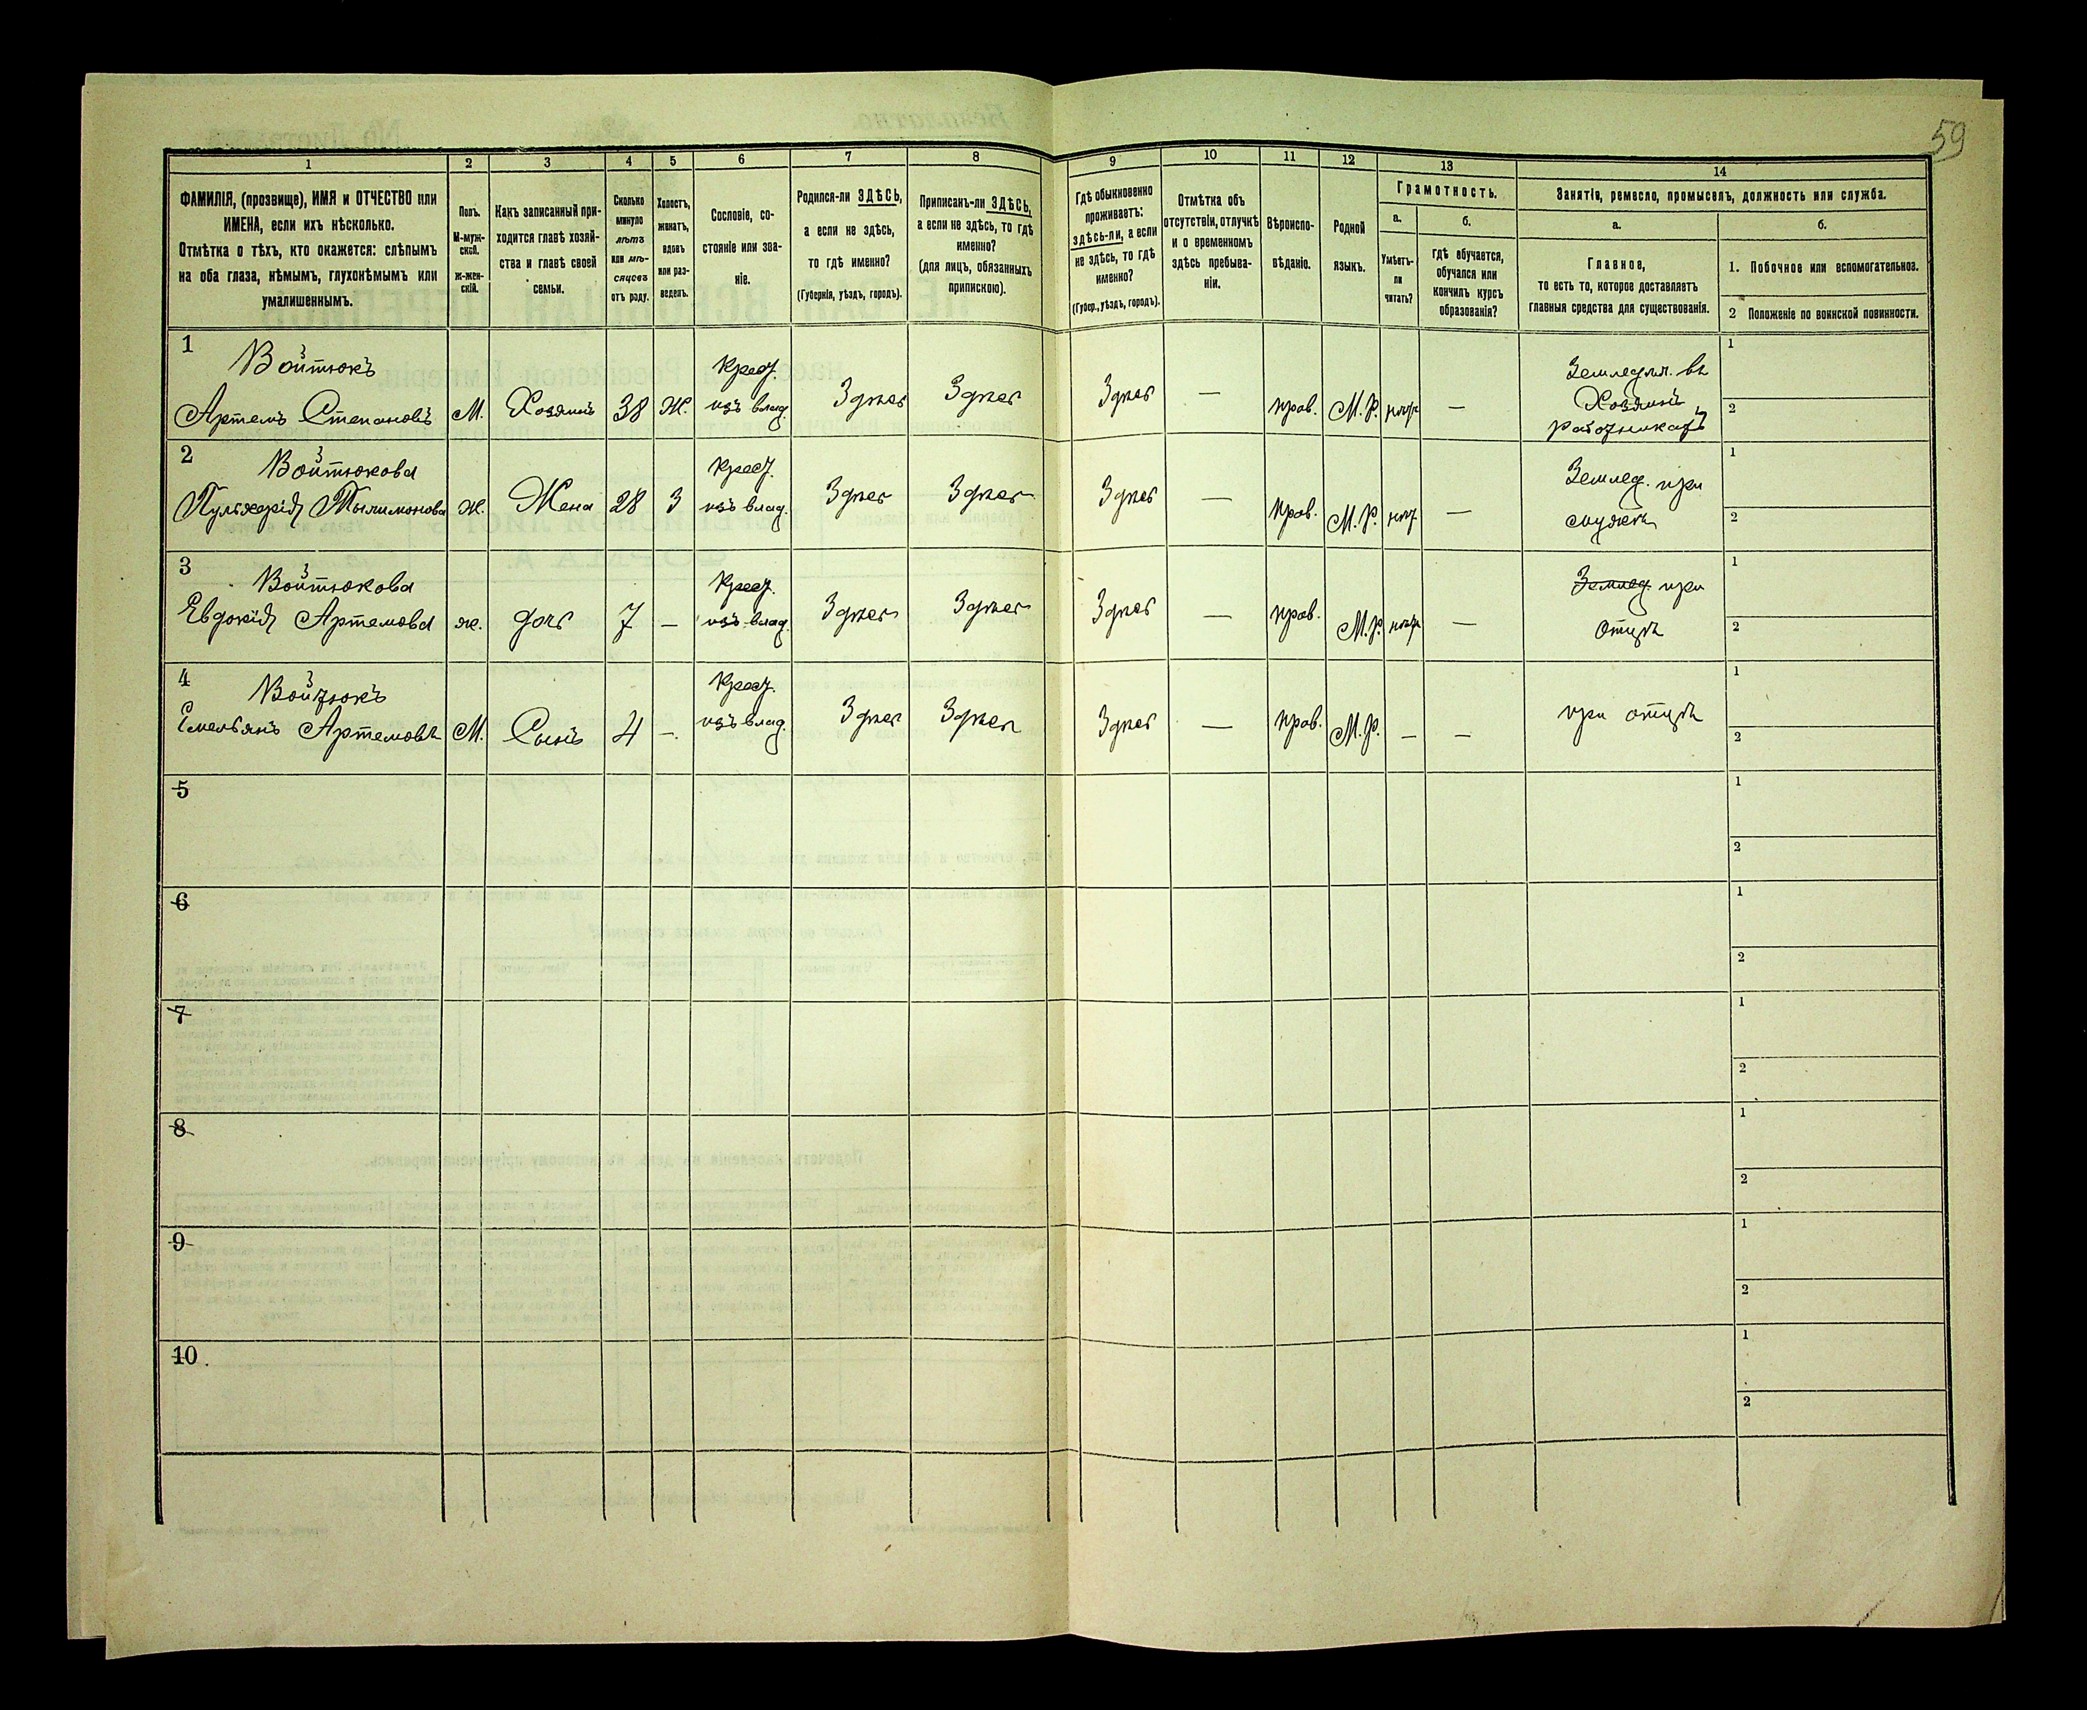 59
1 2 3 4 5 6 7 8 9 10 11 12 13 14
ФАМИЛІЯ, (прозвище), ИМЯ и ОТЧЕСТВО или
ИМЕНА, если ихъ нѣсколько.
Отмѣтка о тѣхъ, кто окажется: слѣпымъ
на оба глаза, нѣмымъ, глухонѣмымъ или
умалишеннымъ.
Полъ.
М-муж-
ской.
ж-жен-
скій.
Какъ записанный при-
ходится главѣ хозяй-
ства и главѣ своей
семьи.
Сколько
минуло
лѣтъ
или мѣ-
сяцевъ
отъ роду.
Холостъ,
женатъ,
вдовъ
или раз-
веденъ.
Сословіе, со-
стояніе или зва-
ніе.
Родился-ли ЗДѢСЬ,
а если не здѣсь,
то гдѣ именно?
(Губернія, уѣздъ, городъ).
Приписанъ-ли ЗДѢСЬ,
а если не здѣсь, то гдѣ
именно?
(для лицъ, обязанныхъ
припискою).
Гдѣ обыкновенно
проживаетъ:
здѣсь-ли, а если
не здѣсь, то гдѣ
именно?
(Губер., уѣздъ, городъ).
Отмѣтка объ
отсутствіи, отлучкѣ
и о временномъ
здѣсь пребыва-
ніи.
Вѣроиспо-
вѣданіе.
Родной
языкъ.
Грамотность.
а. б.
Умѣетъ-
ли
читать?
Гдѣ обучается,
обучался или
кончилъ курсъ
образованія?
Занятія, ремесло, промыселъ, должность или служба.
а. б.
Главное,
то есть то, которое доставляетъ
главныя средства для существованія.
1. Побочное или вспомогательное.
2 Положеніе по воинской повинности.
1 Войтюкъ Крест. Земледѣл. въ 1
Артемъ Степановъ М. Хозяинъ 38 Ж. изъ влад. Здѣсь Здѣсь Здѣсь — прав. М. Р. нѣтъ — Хозяинъ 2
2 Войтюкова Крест. Землед. при 1
Пульхерія ж. Жена 28 З изъ влад. Здѣсь Здѣсь Здѣсь — прав. М. Р. нѣт. — мужѣ 2
3 Войтюкова Крест. Землед. при 1
Евдокія Артемова ж. дочь 7 — изъ влад. Здѣсь Здѣсь Здѣсь — прав. М. Р. нѣтъ — отцѣ 2
4 Войтюкъ Крест. 1
Емельянъ Артемовъ М. Сынъ 4 — изъ влад. Здѣсь Здѣсь Здѣсь — прав. М. Р. — — при отцѣ 2
5 1
2
6 1
2
7 1
2
8 1
2
9 1
2
10 1
2